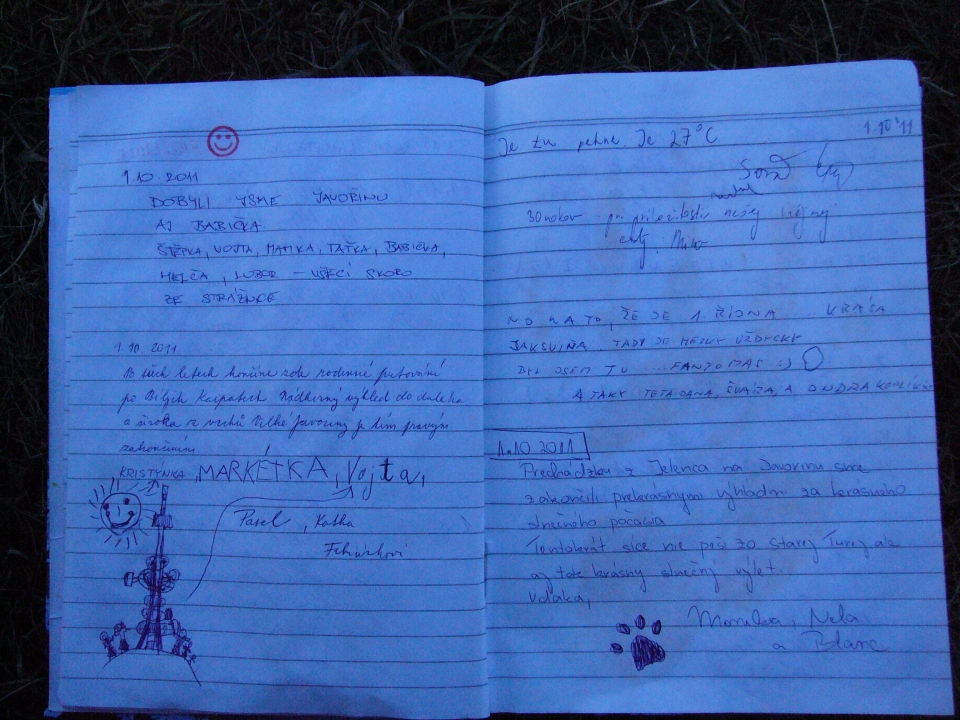 1.10.2011
DOBYLI JSME JAVOŘINU
AJ BABIČKA.
ŠTĚPKA, VOJTA, MAMKA, TAŤKA, BABIČKA,
HELČA, LUBOR – VŠECI SKORO
ZE STRÁŽNICE
1.10 2011
letech končíme rodinné putování
po Bílých Karpatech. Nádherný výhled do daleka
a široka z vrchů Velké Javořiny je tím pravým
zakončením.
KRISTÝNKA, MARKÉTKA, Vojta,
Pavel, Katka
1.10 '11
Je tu pekne Je 27°C
pri príležitosti našej
NO NA TO, ŽE JE 1. ŘÍJNA
TADY JE HEZKY VŽDYCKY
BYL JSEM TU ... FANTOMAS :)
A TAKY TETA DANA, ŠVÁRA, A ONDRA
1.10 2011
Prechádzku z Jelenca na Javorinu sme
zakončili prekrásnymi výhľadmi za krásneho
slnečného počasia
Tentokrát síce nie peši zo Starej Turej ale
aj tak krásny slnečný výlet.
Vďaka,
Nela
a Blanc